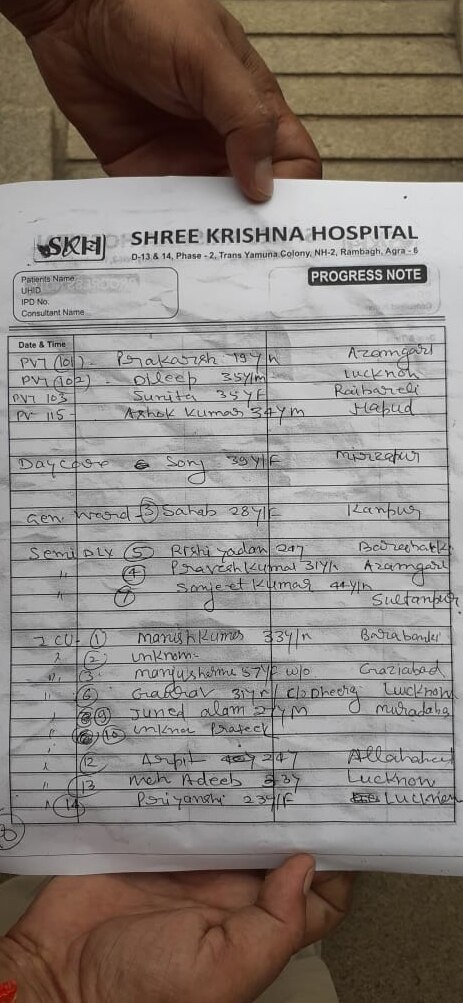 SKH
SHREE KRISHNA HOSPITAL
D-13 & 14, Phase - 2, Trans Yamuna Colony, NH-2, Rambagh, Agra - 6
PROGRESS NOTE
Patients Name
UHID
IPD No.
Consultant Name
Date & Time
PVT (101) - Prakarsh 19y/m Azamgarh
PVT (102) - Dileep 35y/m Lucknow
PVT 103 Sunita 35yF Raibareli
PV 115 - Ashok Kumar 34ym Hapud
Daycare Sonj 39y/F Mirzapur
Gen. Ward - (3) Sahab 28y/F Kanpur
Semi DLX (5) Rishi yadav 24y Barabakki
" (4) Pravesh Kumar 31y/m Azamgarh
" (7) Sonjeet Kumar 44y/m
Sultanpur
ICU - (1) Manish Kumar 33y/m Barabanki
" (2) Unknown
" (3) Manju sharma 57yF w/o Graziabad
" (6) Graurav 31y c/o Dheeraj Lucknow
" (9) Juned alam 27yM muradaba
" (10) Unknow Prateek
" (12) Arpit 24y Allahabad
" (13) Moh Adeeb 33y Lucknow
" (14) Priyanshi 23y/F Lucknow